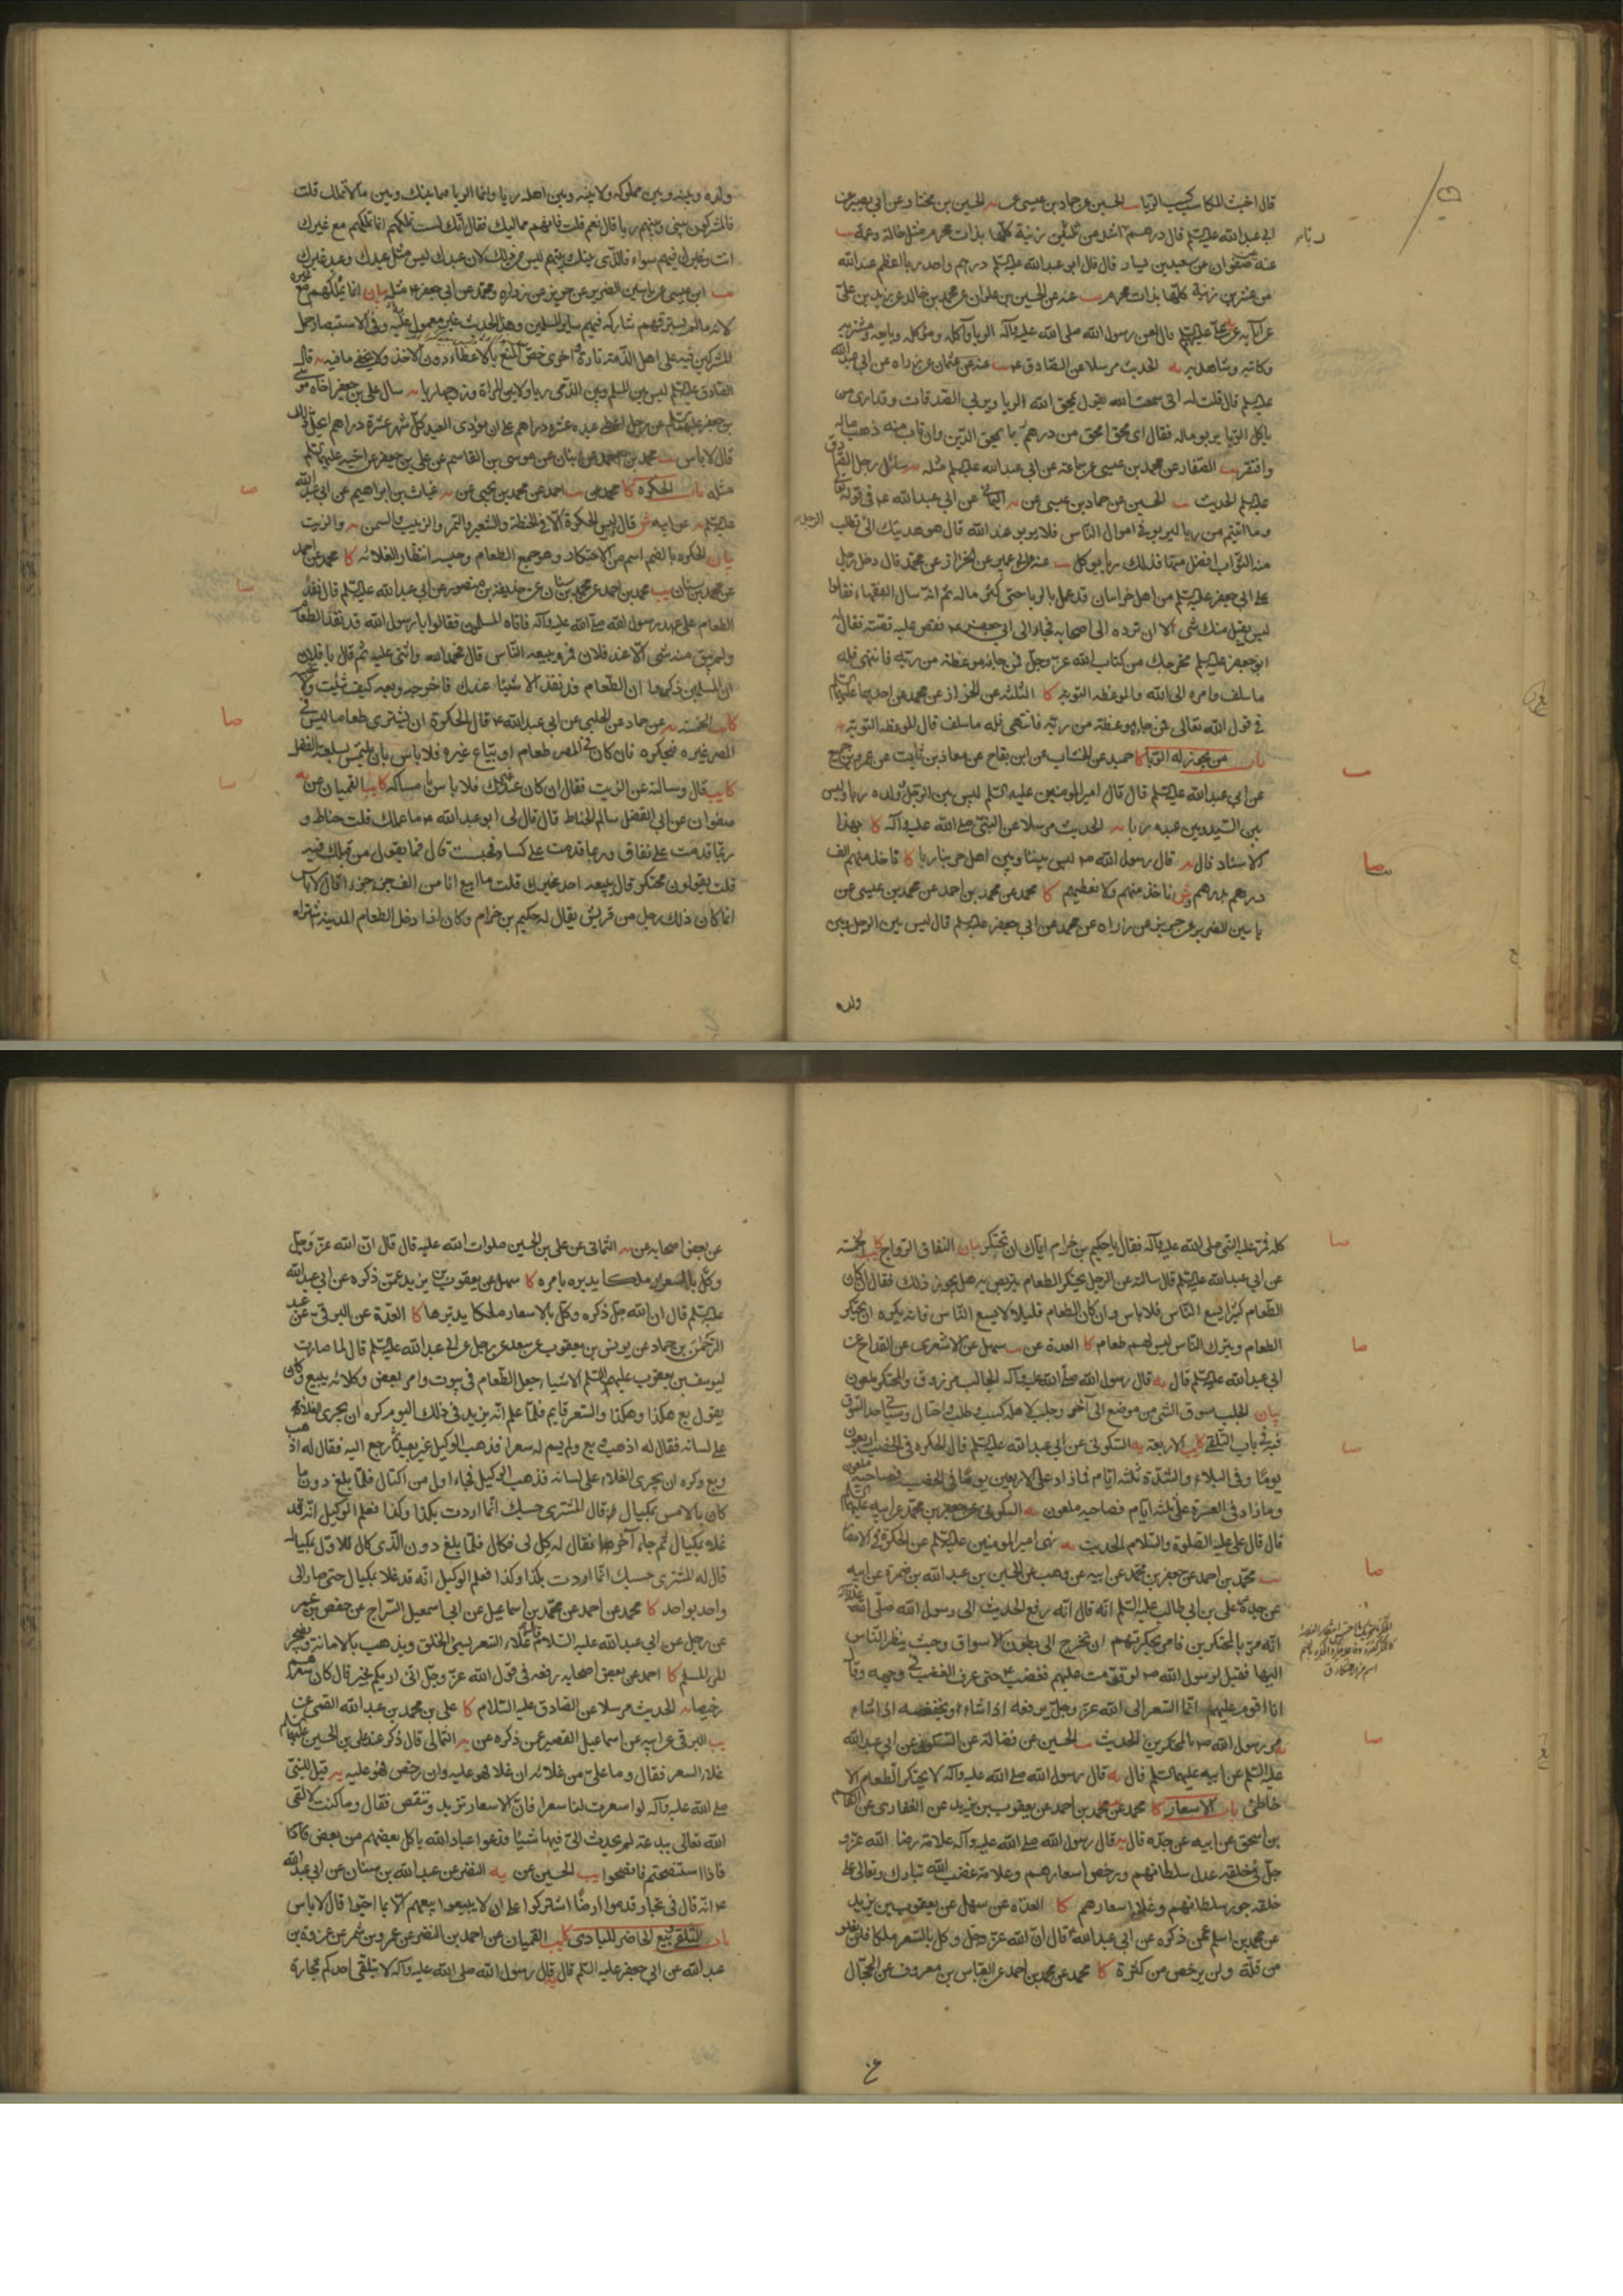 قال اخبث المكاسب كسب الربا يب الحسين عن حماد بن عيسى عن يه الحسين بن مختار عن ابي بصير عن
ابي عبد الله عليه السلم قال درهم ربا اشد من ثلثين زنية كلها بذات محرم مثل خالة وعمة يب
عنه عن صفوان عن سعيد بن يسار قال قال ابو عبد الله عليه السلم درهم واحد ربا اعظم عند الله
من عشرين زنية كلها بذات محرم يب عنه عن الحسين بن علوان عن عمرو بن خالد عن زيد بن علي
عن آبائه عن علي عليه السلم قال لعن رسول الله صلى الله عليه وآله الربا وآكله ومؤكله وبايعه ومشتريه
وكاتبه وشاهديه يه الحديث مرسلا عن الصادق ع يب عنه عن عثمان عن زرارة عن ابي عبد الله
عليه السلم قال قلت له اني سمعت الله يقول يمحق الله الربا ويربي الصدقات وقد ارى من
ياكل الربا يربو ماله فقال اي محق امحق من درهم ربا يمحق الدين وان تاب منه ذهب ماله
وافتقر يب الصفار عن محمد بن عيسى عن سماعة عن ابي عبد الله عليه السلم مثله يه سائل رجل الصادق
عليه السلم الحديث يب الحسين عن حماد بن عيسى عن يه اليماني عن ابي عبد الله ع في قوله تعالى
وما اتيتم من ربا ليربو في اموال الناس فلا يربو عند الله قال هو هديتك الى الرجل تطلب
منه الثواب افضل منها فذلك ربا يؤكل يب عنه عن ابن ابي عمير عن الخزاز عن محمد قال دخل رجل
على ابي جعفر عليه السلم من اهل خراسان قد عمل بالربا حتى كثر ماله ثم انه سال الفقهاء فقالوا
ليس يقبل منك شئ الا ان ترده الى اصحابه فجاء الى ابي جعفر ع فقص عليه قصته فقال
ابو جعفر عليه السلم مخرجك من كتاب الله عز وجل فمن جاءه موعظة من ربه فانتهى فله
ما سلف وامره الى الله والموعظة التوبة كا الثلثة عن الخزاز عن محمد عن احدهما عليهما السلم
في قول الله تعالى فمن جاءه موعظة من ربه فانتهى فله ما سلف قال الموعظة التوبة
باب من يجوز له الربا كا حميد عن الخشاب عن ابن بقاح عن معاذ بن ثابت عن عمرو بن جميع
عن ابي عبد الله عليه السلم قال قال امير المومنين عليه السلم ليس بين الرجل وولده ربا وليس
بين السيد وبين عبده ربا يه الحديث مرسلا عن النبي صلى الله عليه وآله كا بهذا
الاسناد قال يه قال رسول الله ص ليس بيننا وبين اهل حربنا ربا كا فاخذ منهم الف
درهم بدرهم ش ناخذ منهم ولا نعطيهم كا محمد عن محمد بن احمد عن محمد بن عيسى عن
ياسين الضرير عن حريز عن زرارة عن محمد عن ابي جعفر عليه السلم قال ليس بين الرجل وبين
ولده
ولده وبينه وبين مملوكه ولا بينه وبين اهله ربا وانما الربا فيما بينك وبين ما لا تملك قلت
فالمشركون بيني وبينهم ربا قال نعم قلت فانهم مماليك فقال انك لست تملكهم انما تملكهم مع غيرك
انت وغيرك فيهم سواء فالذي بينك وبينهم ليس من ذلك لان عبدك ليس مثل عبدك وعبد غيرك
يب ابن عيسى عن ياسين الضرير عن حريز عن زرارة ومحمد عن ابي جعفر ع مثله بيان انما تملكهم مع غيره
لانه ما لم يسترقهم شاركه فيهم ساير المسلمين وهذا الحديث غير معمول عليه وفي الاستبصار حمل
المشركين فيه على اهل الذمة تارة واخرى خص المنع بالاعطاء دون الاخذ ولا يخفى ما فيه يه قال
الصادق عليه السلم ليس بين المسلم وبين الذمي ربا ولا بين المراة وزوجها ربا يه سال علي بن جعفر اخاه موسى
بن جعفر عليهما السلم عن رجل اعطى عبده عشرة دراهم على ان يؤدي العبد كل شهر عشرة دراهم ايحل ذلك
قال لا باس يب محمد بن احمد عن بنان عن موسى بن القاسم عن علي بن جعفر عن اخيه عليهما السلم
مثله باب الحكرة كا محمد عن يب احمد عن محمد بن يحيى عن يه غياث بن ابراهيم عن ابي عبد الله
عليه السلم يه عن ابيه ش قال ليس الحكرة الا في الحنطة والشعير والتمر والزبيب والسمن يه والزيت
بيان الحكرة بالضم اسم من الاحتكار وهو جمع الطعام وحبسه انتظار الغلائه كا محمد عن احمد
عن محمد بن سنان يب محمد بن احمد عن محمد بن سنان عن حذيفة بن منصور عن ابي عبد الله عليه السلم قال نفد
الطعام على عهد رسول الله صلى الله عليه وآله فاتاه المسلمون فقالوا يا رسول الله قد نفد الطعام
ولم يبق منه شئ الا عند فلان فمره يبيعه الناس قال فحمد الله واثنى عليه ثم قال يا فلان
ان المسلمين ذكروا ان الطعام قد نفد الا شيئا عندك فاخرجه وبعه كيف شئت ولا تحبسه
كا يب الخمسة يه عن حماد عن الحلبي عن ابي عبد الله ع قال الحكرة ان يشتري طعاما ليس في
المصر غيره فيحكره فان كان في المصر طعام او يباع غيره فلا باس بان يلتمس بسلعته الفضل
كا يب قال وسالته عن الزيت فقال ان كان عند غيرك فلا باس بامساكه كا يب القميان عن يه
صفوان عن ابي الفضل سالم الحناط قال قال لي ابو عبد الله ع ما عملك قلت حناط و
ربما قدمت على نفاق وربما قدمت على كساد فحبست قال فما يقول من قبلك فيه
قلت يقولون محتكر قال يبيعه احد غيرك قلت ما ابيع انا من الف جزء جزءا قال لا باس
انما كان ذلك رجل من قريش يقال له حكيم بن حزام وكان اذا دخل الطعام المدينة اشتراه
كله فمر عليه النبي صلى الله عليه وآله فقال يا حكيم بن حزام اياك ان تحتكر بيان النفاق الرواج كا يب الخمسة
عن ابي عبد الله عليه السلم قال سالته عن الرجل يحتكر الطعام يتربص به هل يجوز ذلك فقال ان كان
الطعام كثيرا يسع الناس فلا باس وان كان الطعام قليلا لا يسع الناس فانه يكره ان يحتكر
الطعام ويترك الناس ليس لهم طعام كا العدة عن يب سهل عن الاشعري عن القداح عن
ابي عبد الله عليه السلم قال يه قال رسول الله صلى الله عليه وآله الجالب مرزوق والمحتكر ملعون
بيان الجلب سوق الشئ من موضع الى آخر وجلب لاهله كسب وطلب واحتال وسياتي حد السوق
فيه في باب التلقي كا يب الاربعة يه السكوني عن ابي عبد الله عليه السلم قال الحكرة في الخصب اربعون
يوما وفي البلاء والشدة ثلثة ايام فما زاد على الاربعين يوما في الخصب فصاحبه ملعون
وما زاد في العسرة على ثلثة ايام فصاحبه ملعون يه السكوني عن جعفر بن محمد عن ابيه عليهما السلم
قال قال علي عليه الصلوة والسلام الحديث يه نهى امير المومنين عليه السلم عن الحكرة في الامصار
يب محمد بن احمد عن جعفر بن محمد عن ابيه عن وهب عن الحسين بن عبد الله بن ضمرة عن ابيه
عن جده عن علي بن ابي طالب عليه السلم انه قال انه رفع الحديث الى رسول الله صلى الله عليه وآله
انه مر بالمحتكرين فامر بحكرتهم ان تخرج الى بطون الاسواق وحيث ينظر الناس
اليها فقيل لرسول الله ص لو قومت عليهم فغضب ع حتى عرف الغضب في وجهه وقال
انا اقوم عليهم انما السعر الى الله عز وجل يرفعه اذا شاء ويخفضه اذا شاء
يه مر رسول الله ص بالمحتكرين الحديث يب الحسين عن فضالة عن السكوني عن ابي عبد الله
عليه السلم عن ابيه عليهما السلم قال يه قال رسول الله صلى الله عليه وآله لا يحتكر الطعام الا
خاطئ باب الاسعار كا محمد عن محمد بن احمد عن يعقوب بن يزيد عن الغفاري عن القاسم
بن اسحق عن ابيه عن جده قال يه قال رسول الله صلى الله عليه وآله علامة رضا الله عز و
جل في خلقه عدل سلطانهم ورخص اسعارهم وعلامة غضب الله تبارك وتعالى على
خلقه جور سلطانهم وغلاء اسعارهم كا العدة عن سهل عن يعقوب بن يزيد
عن محمد بن اسلم عمن ذكره عن ابي عبد الله ع قال ان الله عز وجل وكل بالسعر ملكا فلن يغلو
من قلة ولن يرخص من كثرة كا محمد عن محمد بن احمد عن العباس بن معروف عن الحجال
عن
عن بعض اصحابه عن يه الثمالي عن علي بن الحسين صلوات الله عليه قال قال ان الله عز وجل
وكل بالسعر ملكا يدبره بامره كا سهل عن يعقوب بن يزيد عمن ذكره عن ابي عبد الله
عليه السلم قال ان الله جل ذكره وكل بالاسعار ملكا يدبرها كا العدة عن البرقي عن عبد
الرحمن بن حماد عن يونس بن يعقوب عن سعد عن رجل عن ابي عبد الله عليه السلم قال لما صارت
ليوسف بن يعقوب عليهم السلم الاشياء جعل الطعام في بيوت وامر بعض وكلائه يبيع وكان
يقول بع هكذا وهكذا والسعر قايم فلما علم انه يزيد في ذلك اليوم كره ان يجري الغلاء
على لسانه فقال له اذهب وبع ولم يسم له سعرا فذهب الوكيل غير بعيد ثم رجع اليه فقال له اذهب
وبع وكره ان يجري الغلاء على لسانه فذهب الوكيل فجاء اول من اكتال فلما بلغ دون ما
كان بالامس بمكيال قال المشتري حسبك انما اردت بكذا وكذا فعلم الوكيل انه قد
غلا بمكيال ثم جاء آخر فقال له كل لي فكال فلما بلغ دون الذي كال للاول بمكيال
قال له المشتري حسبك انما اردت بكذا وكذا فعلم الوكيل انه قد غلا بمكيال حتى صار الى
واحد بواحد كا محمد عن احمد عن محمد بن اسماعيل عن ابي اسمعيل السراج عن حفص بن عمر
عن رجل عن ابي عبد الله عليه السلام قال غلاء السعر يسئ الخلق ويذهب بالامانة ويضجر
المرء المسلم كا احمد عن بعض اصحابه رفعه في قول الله عز وجل اني اريكم بخير قال كان سعرهم
رخيصا يه الحديث مرسلا عن الصادق عليه السلام كا علي بن محمد بن عبد الله القمي عن
يب البرقي عن ابيه عن اسماعيل القصير عمن ذكره عن يه الثمالي قال ذكر عند علي بن الحسين عليهما السلم
غلاء السعر فقال وما علي من غلائه ان غلا فهو عليه وان رخص فهو عليه يه قيل للنبي
صلى الله عليه وآله لو اسعرت لنا سعرا فان الاسعار تزيد وتنقص فقال وما كنت لالقى
الله تعالى ببدعة لم يحدث الي فيها شيئا فدعوا عباد الله ياكل بعضهم من بعض
فاذا استنصحتم فانصحوا يب الحسين عن يه النضر عن عبد الله بن سنان عن ابي عبد الله
ع انه قال في تجار قدموا ارضا اشتركوا على ان لا يبيعوا بيعهم الا بما احبوا قال لا باس
باب التلقي وبيع الحاضر للبادي كا يب القميان عن احمد بن النضر عن عمرو بن شمر عن عروة بن
عبد الله عن ابي جعفر عليه السلم قال قال رسول الله صلى الله عليه وآله لا يتلقى احدكم تجارة